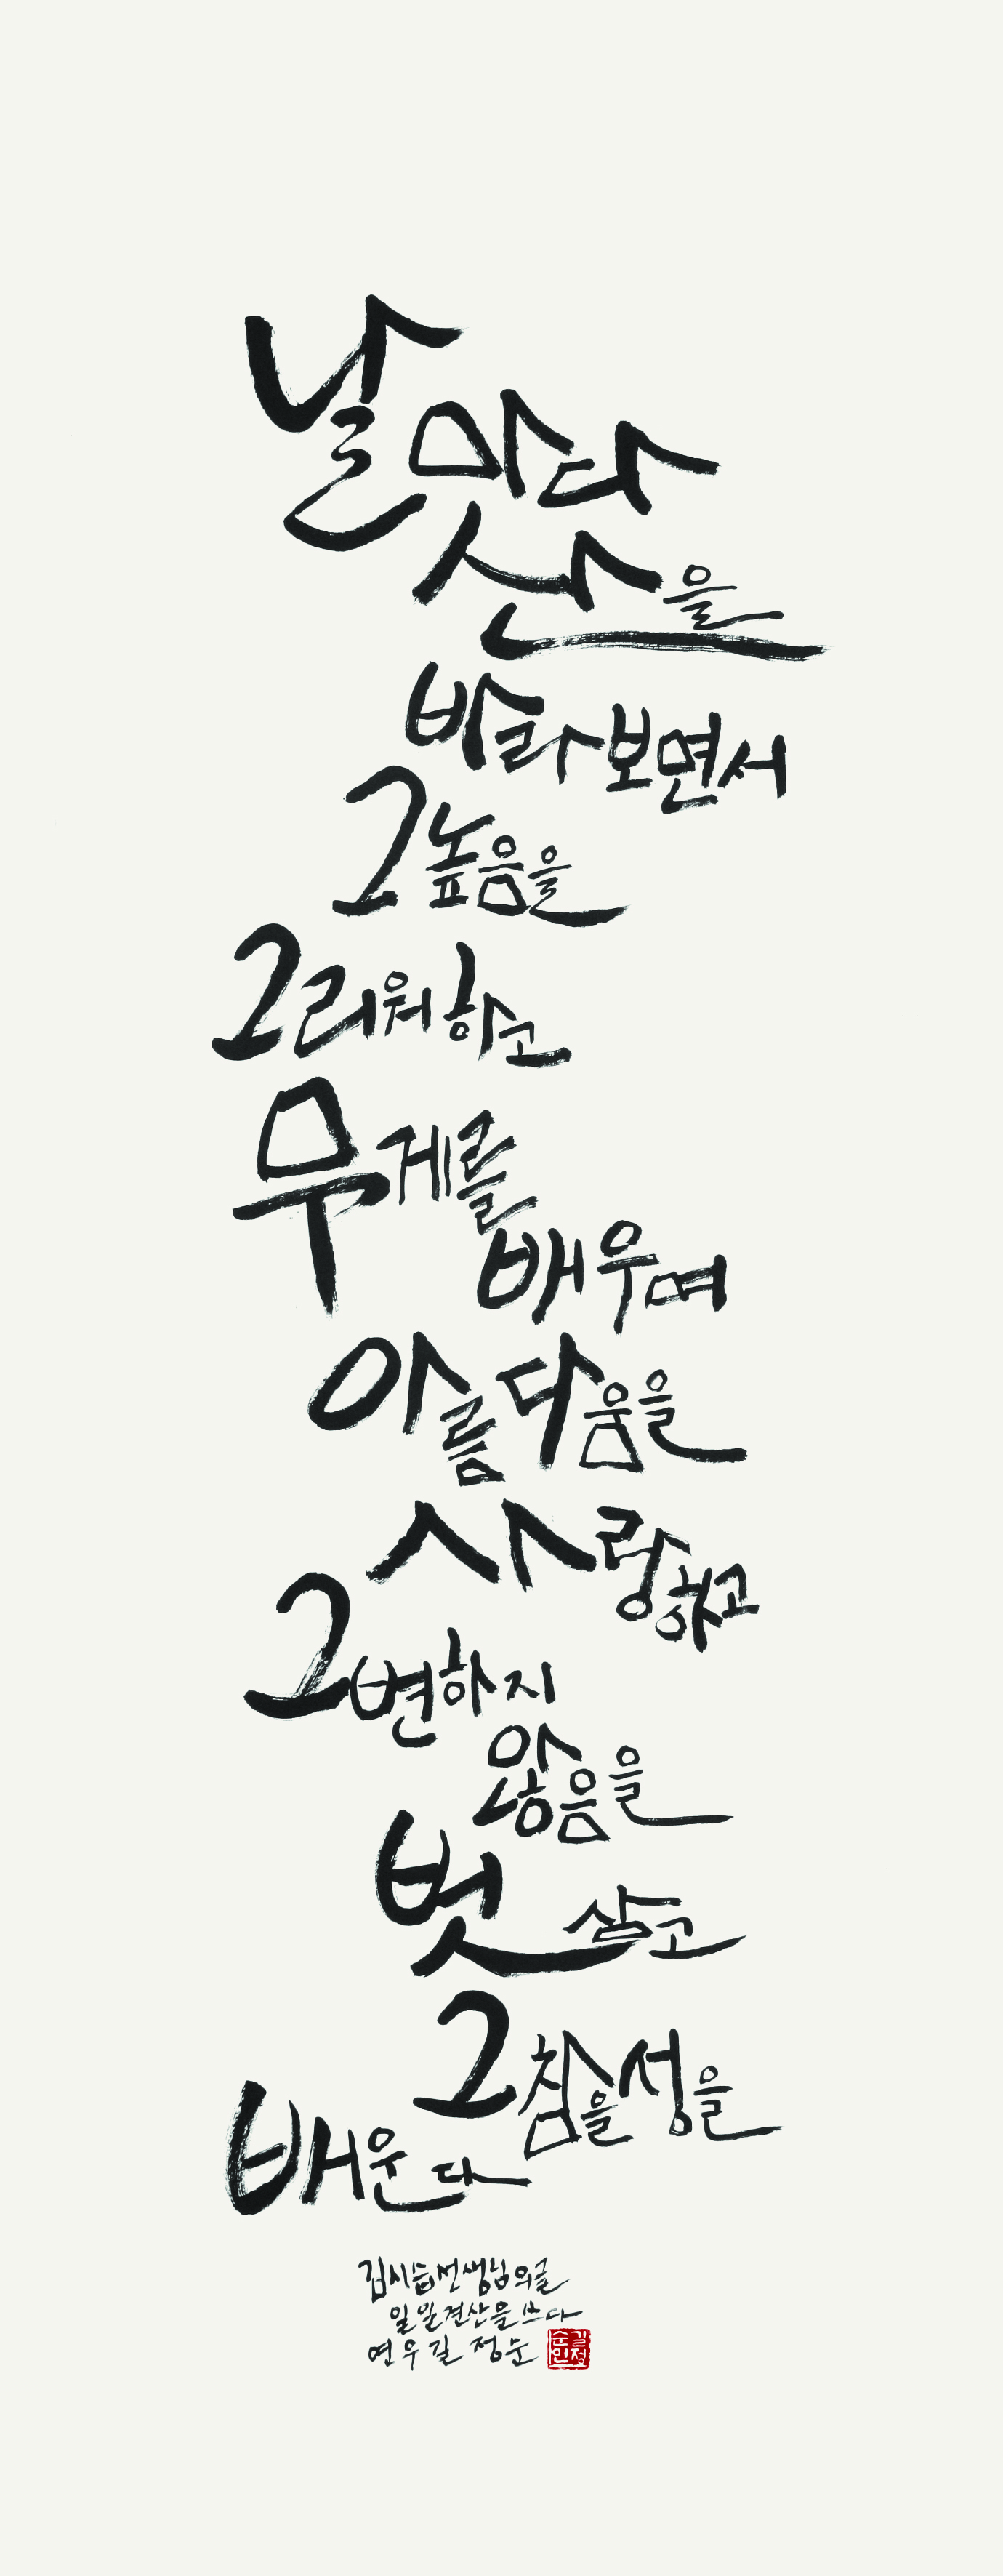 날마다
산을
바라보면서
그 높음을
그리워 하고
무게를
배우며
아름다움을
사랑하고
그 변하지
않음을
벗 삼고
그 참을성을
배운다
김시습 선생님의 글
일일견산을 쓰다
연우 길정순
길정
순인